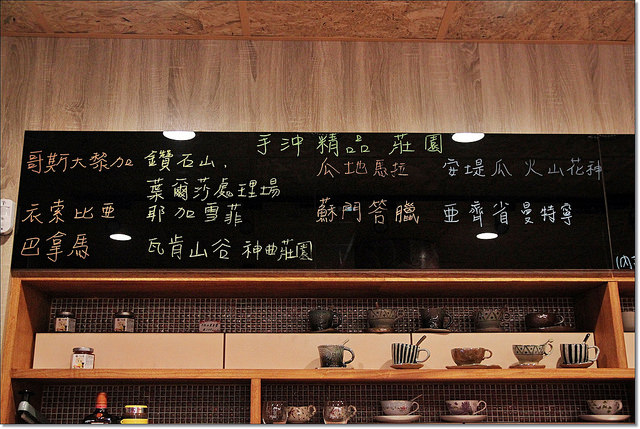 手沖精品 莊園
哥斯大黎加 鑽石山.
葉爾莎處理場
衣索比亞 耶加雪菲
巴拿馬 瓦肯山谷 神曲莊園
瓜地馬拉 安堤瓜 火山花神
蘇門答臘 亞齊省曼特寧